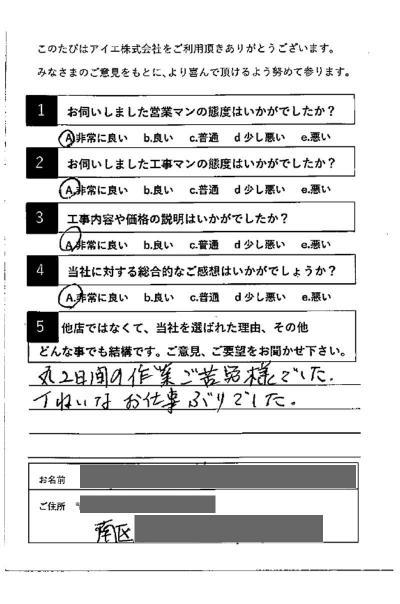 このたびはアイエ株式会社をご利用頂きありがとうございます。
みなさまのご意見をもとに、より喜んで頂けるよう努めて参ります。
1 お伺いしました営業マンの態度はいかがでしたか？
A.非常に良い b.良い c.普通 d 少し悪い e.悪い
2 お伺いしました工事マンの態度はいかがでしたか？
A.非常に良い b.良い c.普通 d 少し悪い e.悪い
3 工事内容や価格の説明はいかがでしたか？
A.非常に良い b.良い c.普通 d 少し悪い e.悪い
4 当社に対する総合的なご感想はいかがでしょうか？
A.非常に良い b.良い c.普通 d 少し悪い e.悪い
5 他店ではなくて、当社を選ばれた理由、その他
どんな事でも結構です。ご意見、ご要望をお聞かせ下さい。
丸2日間の作業ご苦労様でした.
丁ねいなお仕事ぶりでした.
お名前
ご住所
南区